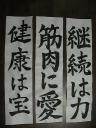 継続は力
筋肉に愛
健康は宝